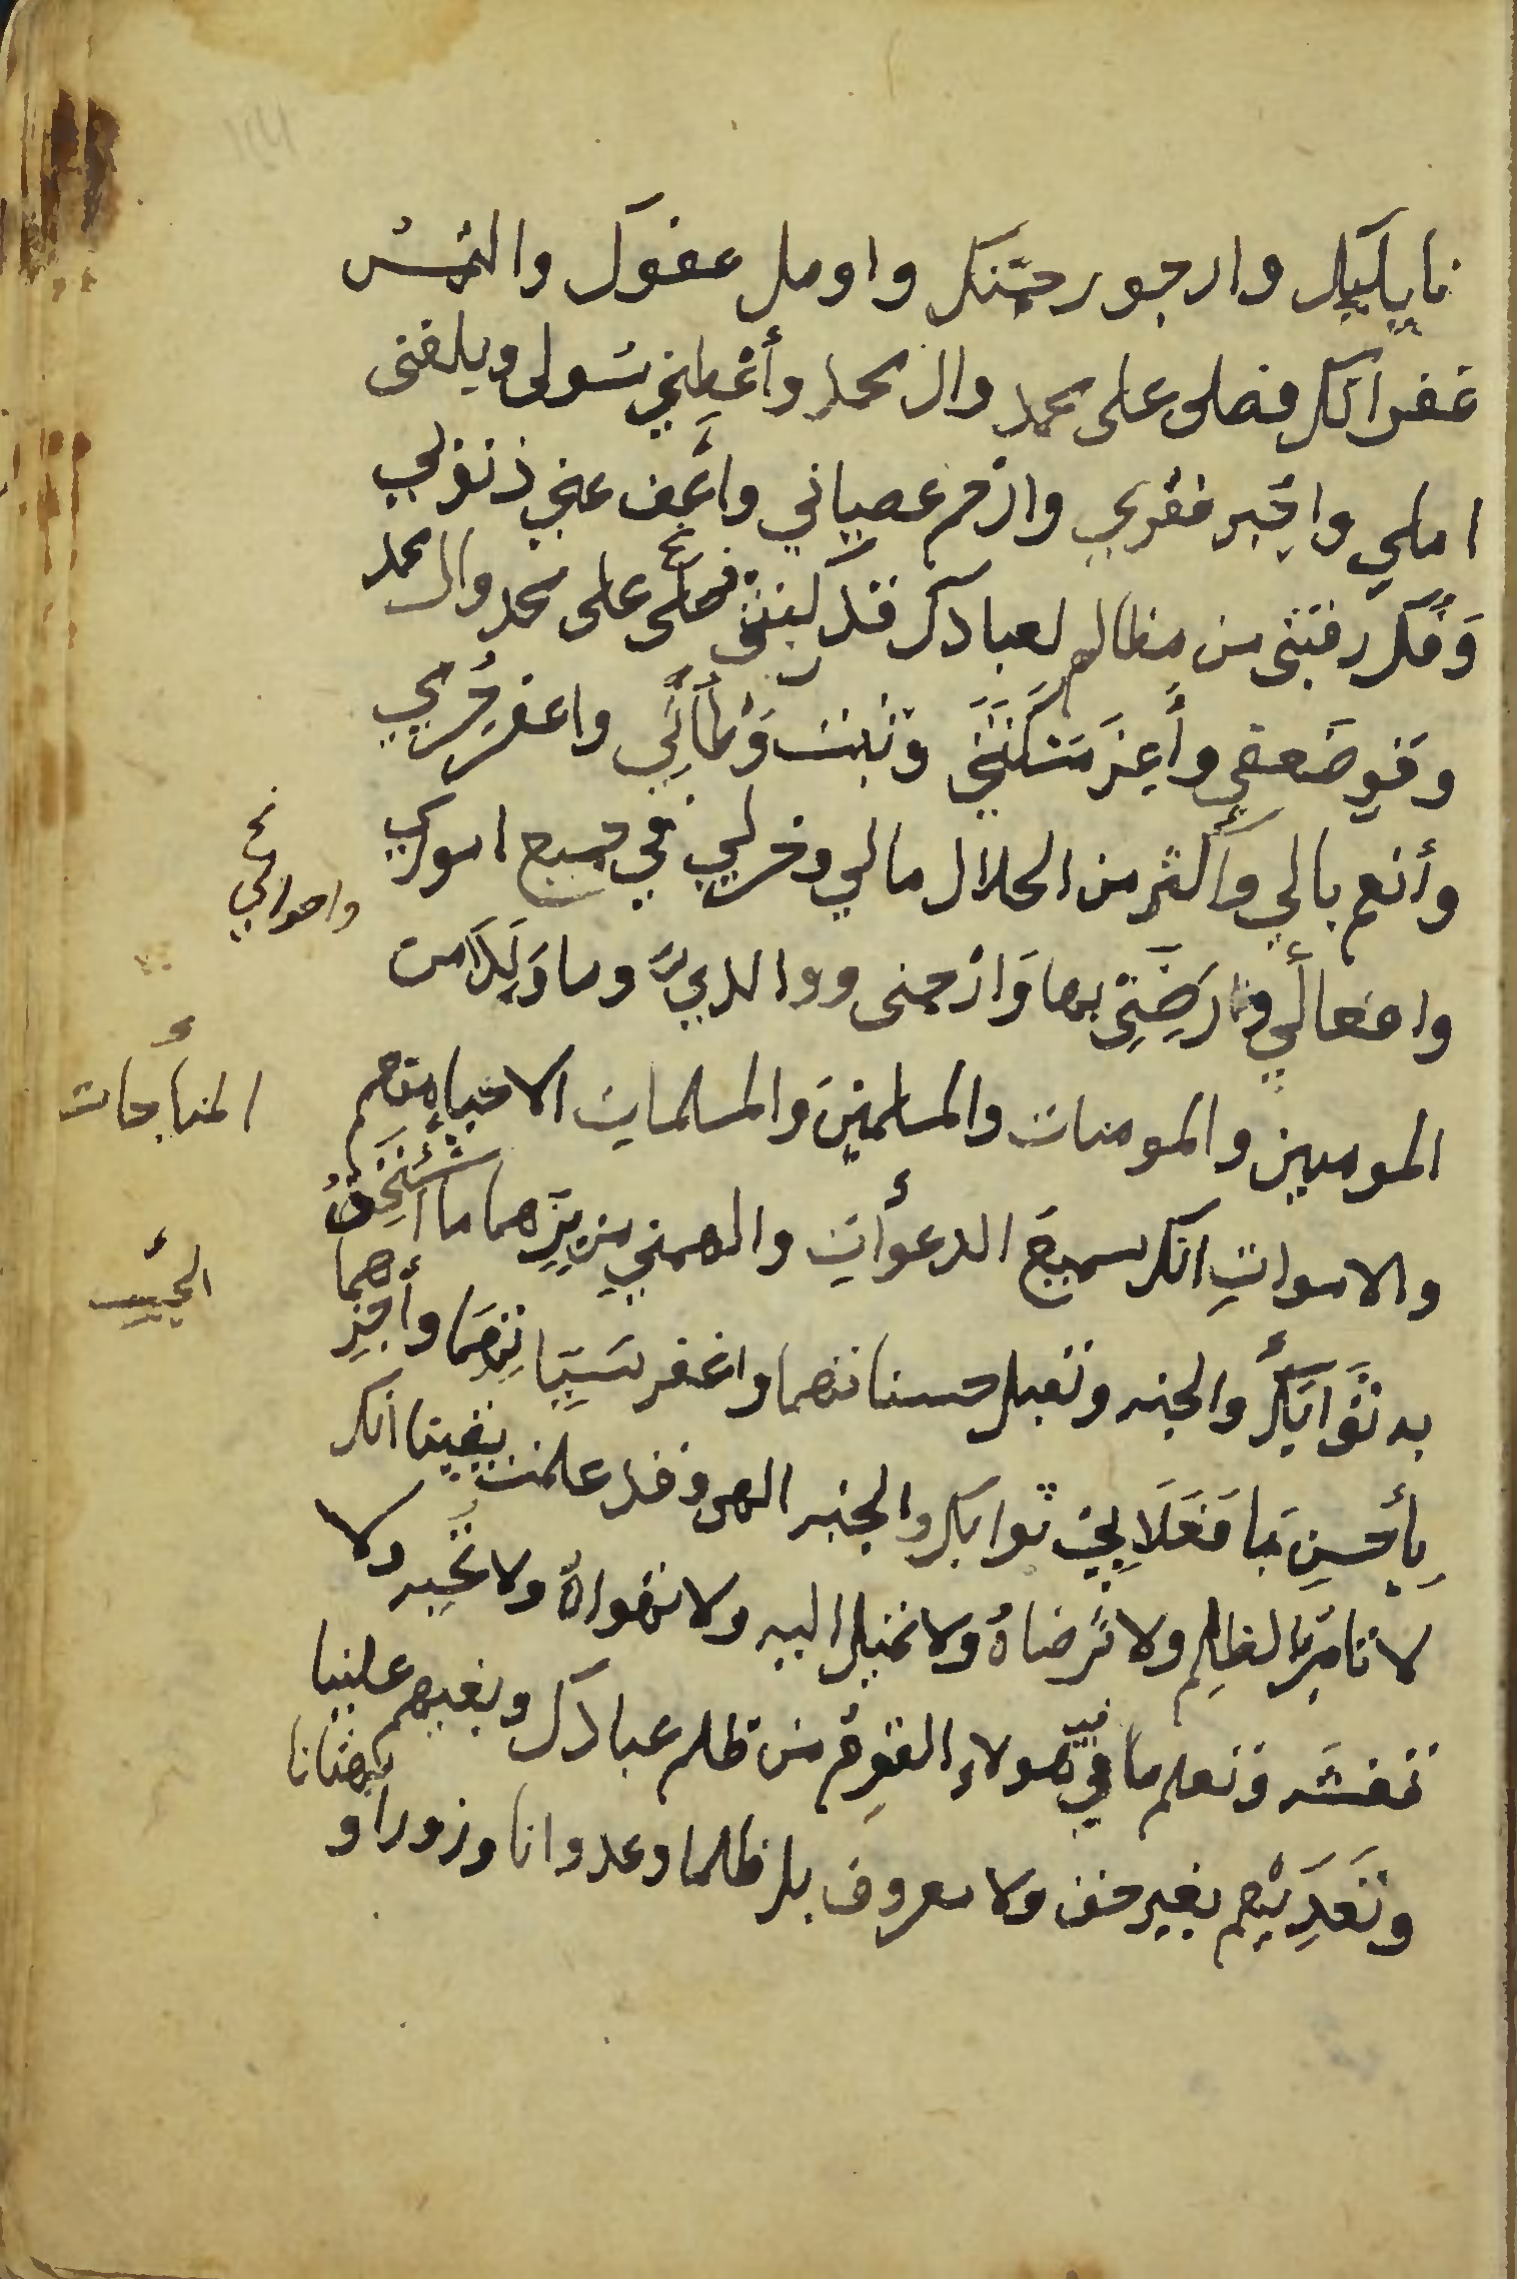 نايليك وارجو رحمتك واومل عفوك والتمس
غفرانك فصلى على محمد وال محمد وأعطِني سُولى وبلغنى
املي واجبر فقري وارحم عصياني واعف عني ذنوبي
وَفُك رقبتى من مظالم لعبادك قد ركبتنى فصلَّى على محمد وال محمد
وقوِ ضَعفي وأعِز مَسْكَنَتي وثبت وَطْأَتي واغفر جُرمي
وأنعم بالي وأكثر من الحلال مالي وخر لي في جميع اموري
واحوالي
وافعالي ورَضِّني بها وَارْحمنى ووالديَّ وما وَلَدَا من
المومنين والمومنات والمسلمينَ والمسلمات الاحياء منهم
المناجات
والاموات انك سميع الدعوات والهمني من بِرِهما ما أستَحِقُ
به ثَوَابَك والجنه وتقبل حسناتهما واغفر سَيِّئاتِهِمَا وأجزِهما
المجيب
بِأحسنِ مَا فَعَلَا بي ثوابك والجنه الهى وقد علمت يقينا انك
لا تامر بالظلم ولا تَرضاهُ ولا تميل اليه ولا تهواهُ ولا تحبه ولا
تغشه وتعلم ما فيه هولاءِ القوم من ظلم عبادك وبغيهم علينا
وتَعَدِّيْهِم بغير حق ولا معروف بل ظلما وعدوانا وزورا و
بهتانا